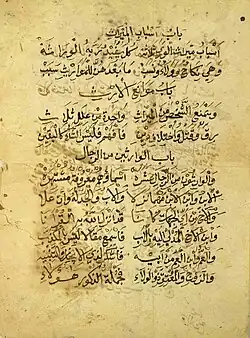 باب اسباب الميراث
اسباب ميراث الورى ثلاثة كل يفيد ربه الوراثة
وهي نكاح وولاء ونسب ما بعدهن للمواريث سبب
باب موانع الارث
ويمنع الشخص من الميراث واحدة من علل ثلاث
رق وقتل واختلاف دين فافهم فليس الشك كاليقين
باب الوارثين من الرجال
والوارثون من الرجال عشرة اسماؤهم معروفة مشتهرة
الابن وابن الابن مهما نزلا والاب والجد له وان علا
والاخ من اي الجهات كانا قد انزل الله به القرانا
وابن الاخ المدلي اليه بالاب فاسمع مقالا ليس بالمكذب
والعم وابن العم من ابيه فاشكر لذي الايجاز والتنبيه
والزوج والمعتق ذو الولاء فجملة الذكور هؤلاء